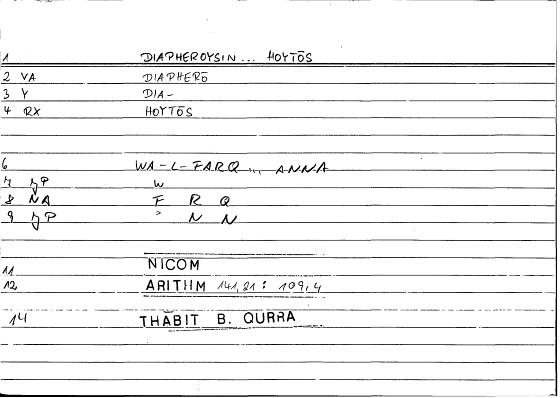 1 DIAPHEROYSIN ... HOYTŌS
2 VA DIAPHERŌ
3 Y DIA-
4 RX HOYTŌS
6 WA-L-FARQ ... ANNA
7 ȷP W
8 NA F R Q
9 ȷP ʾ N N
11 NICOM
12 ARITHM 141,21 : 109,4
14 THĀBIT B. QURRA